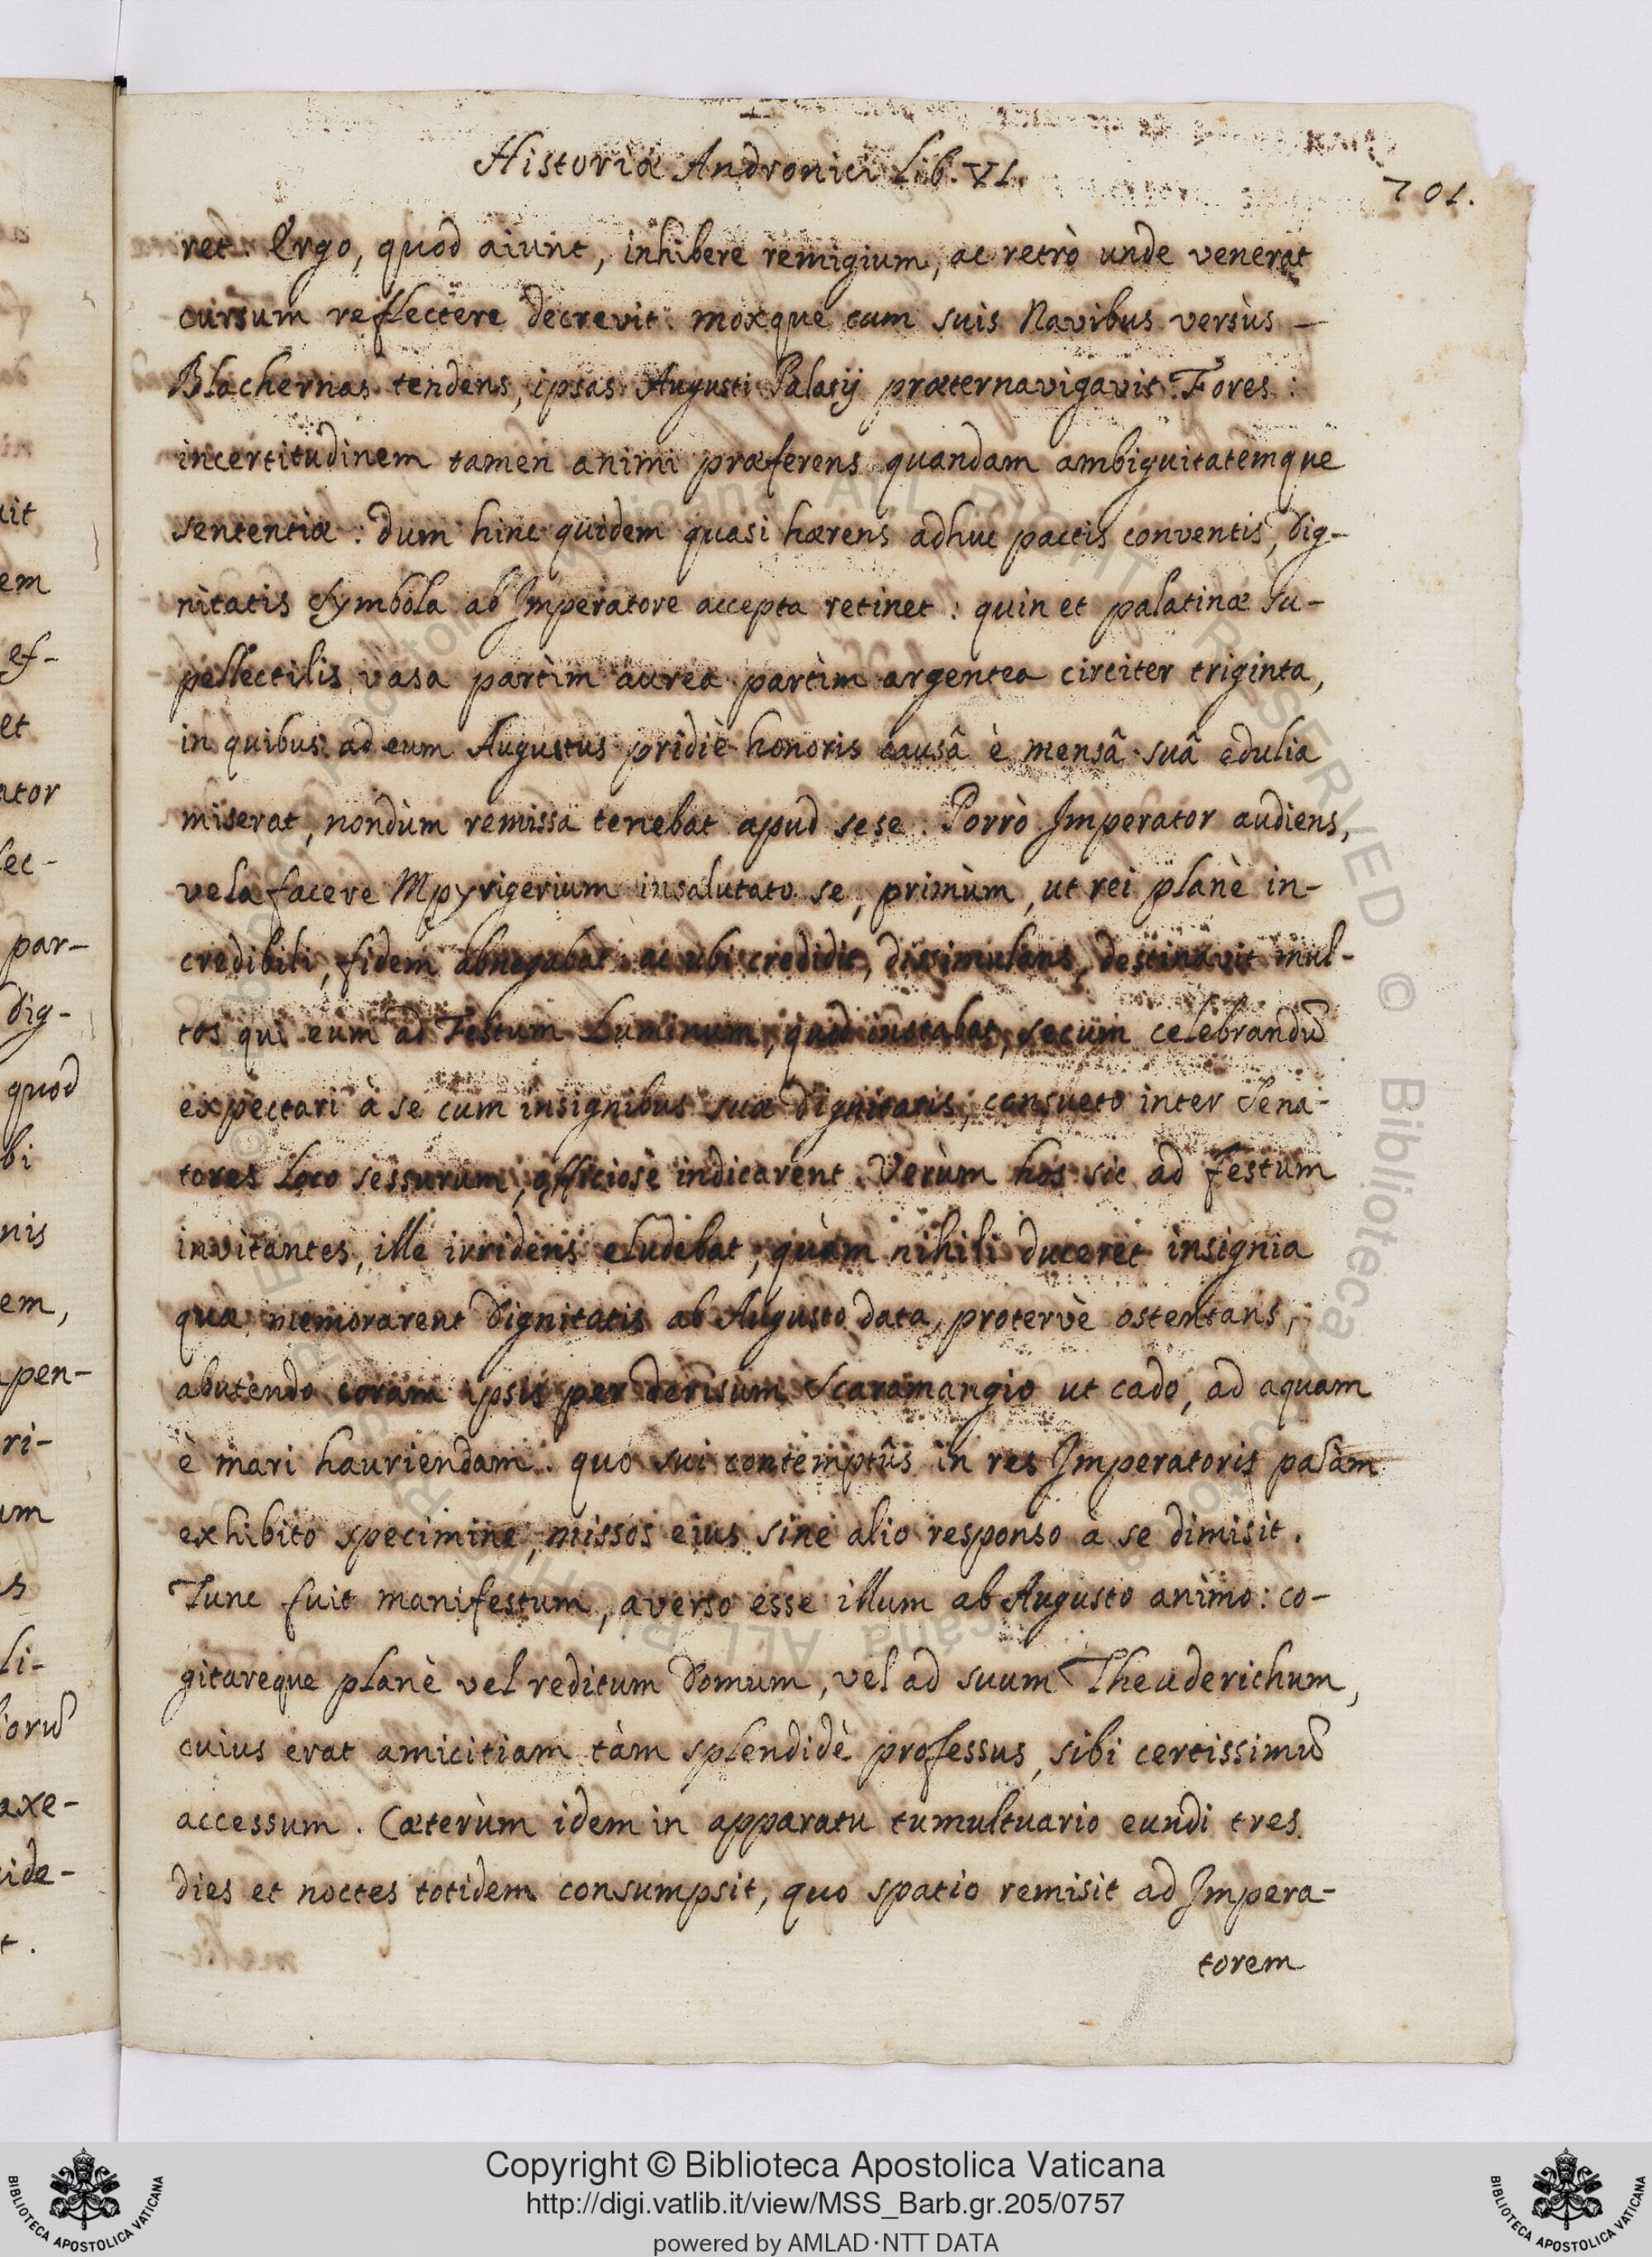 Historiæ Andronici Lib. XI.
701.
ret. Ergo, quod aiunt, inhibere remigium, ac retrò unde venerat
cursum reflectere decrevit. moxque cum suis Navibus versùs —
Blachernas tendens, ipsas Augusti Palatij præternavigavit Fores:
incertitudinem tamen animi præferens quandam ambiguitatemque
sententiæ: dum hinc quidem quasi hærens adhuc pactis conventis, dig-
nitatis Symbola ab Imperatore accepta retinet: quin et palatinæ Su-
pellectilis vasa partìm aurea partìm argentea circiter triginta,
in quibus ad eum Augustus pridiè honoris causâ è mensâ suâ edulia
miserat, nondùm remissa tenebat apud sese. Porrò Imperator audiens,
vela facere Mpyrigerium insalutato se, primùm, ut rei planè in-
credibili, fidem abnegabat: ac ubi credidit, dissimulans, destinavit mul-
tos qui eum ad Festum Luminum, quod instabat, secum celebrandũ
expectari à se cum insignibus suæ Dignitatis, consueto inter Sena-
tores Loco sessurum, officiosè indicarent. Verùm hos sic ad festum
invitantes, ille irridens eludebat, quàm nihili duceret insignia
quæ memorarent Dignitatis ab Augusto data, protervè ostentans,
abutendo coram ipsis per derisum Scaramangio ut cado, ad aquam
è mari hauriendam. quo sui contemptûs in res Imperatoris palàm
exhibito specimine, missos eius sine alio responso à se dimisit.
Tunc fuit manifestum, averso esse illum ab Augusto animo: co-
gitareque planè vel reditum Domum, vel ad suum Theuderichum,
cuius erat amicitiam tàm splendidè professus, sibi certissimũ
accessum. Cæterùm idem in apparatu tumultuario eundi tres
dies et noctes totidem consumpsit, quo spatio remisit ad Impera-
torem
Copyright © Biblioteca Apostolica Vaticana
http://digi.vatlib.it/view/MSS_Barb.gr.205/0757
powered by AMLAD·NTT DATA
BIBLIOTECA APOSTOLICA VATICANA
BIBLIOTECA APOSTOLICA VATICANA